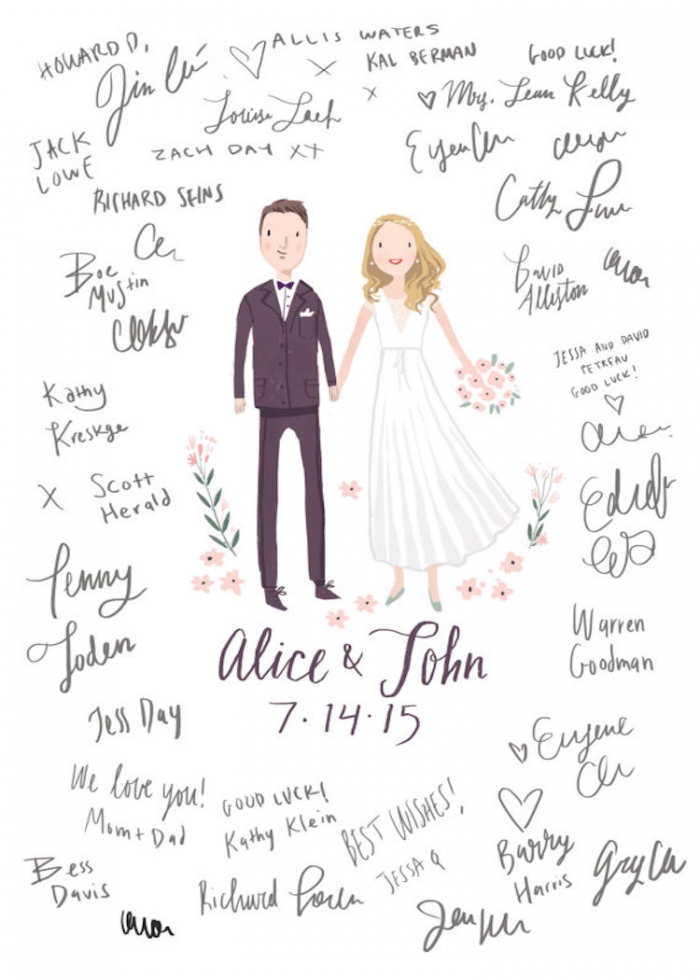 HOWARD D.
ALLIS WATERS
KAL BERMAN
GOOD LUCK!
Mrs. Lean Kelly
JACK
LOWE
ZACH DAY XX
RICHARD SEINS
Cathy
Boe
Mustin
David
Alliston
JESSA AND DAVID
PETREAU
GOOD LUCK!
Kathy
Kreskge
X Scott
Herald
Penny
Loden
Warren
Goodman
Alice & John
7·14·15
Jess Day
Eugene
We love you!
Mom + Dad
GOOD LUCK!
Kathy Klein
BEST WISHES!
JESSA Q
Barry
Harris
Bess
Davis
Richard